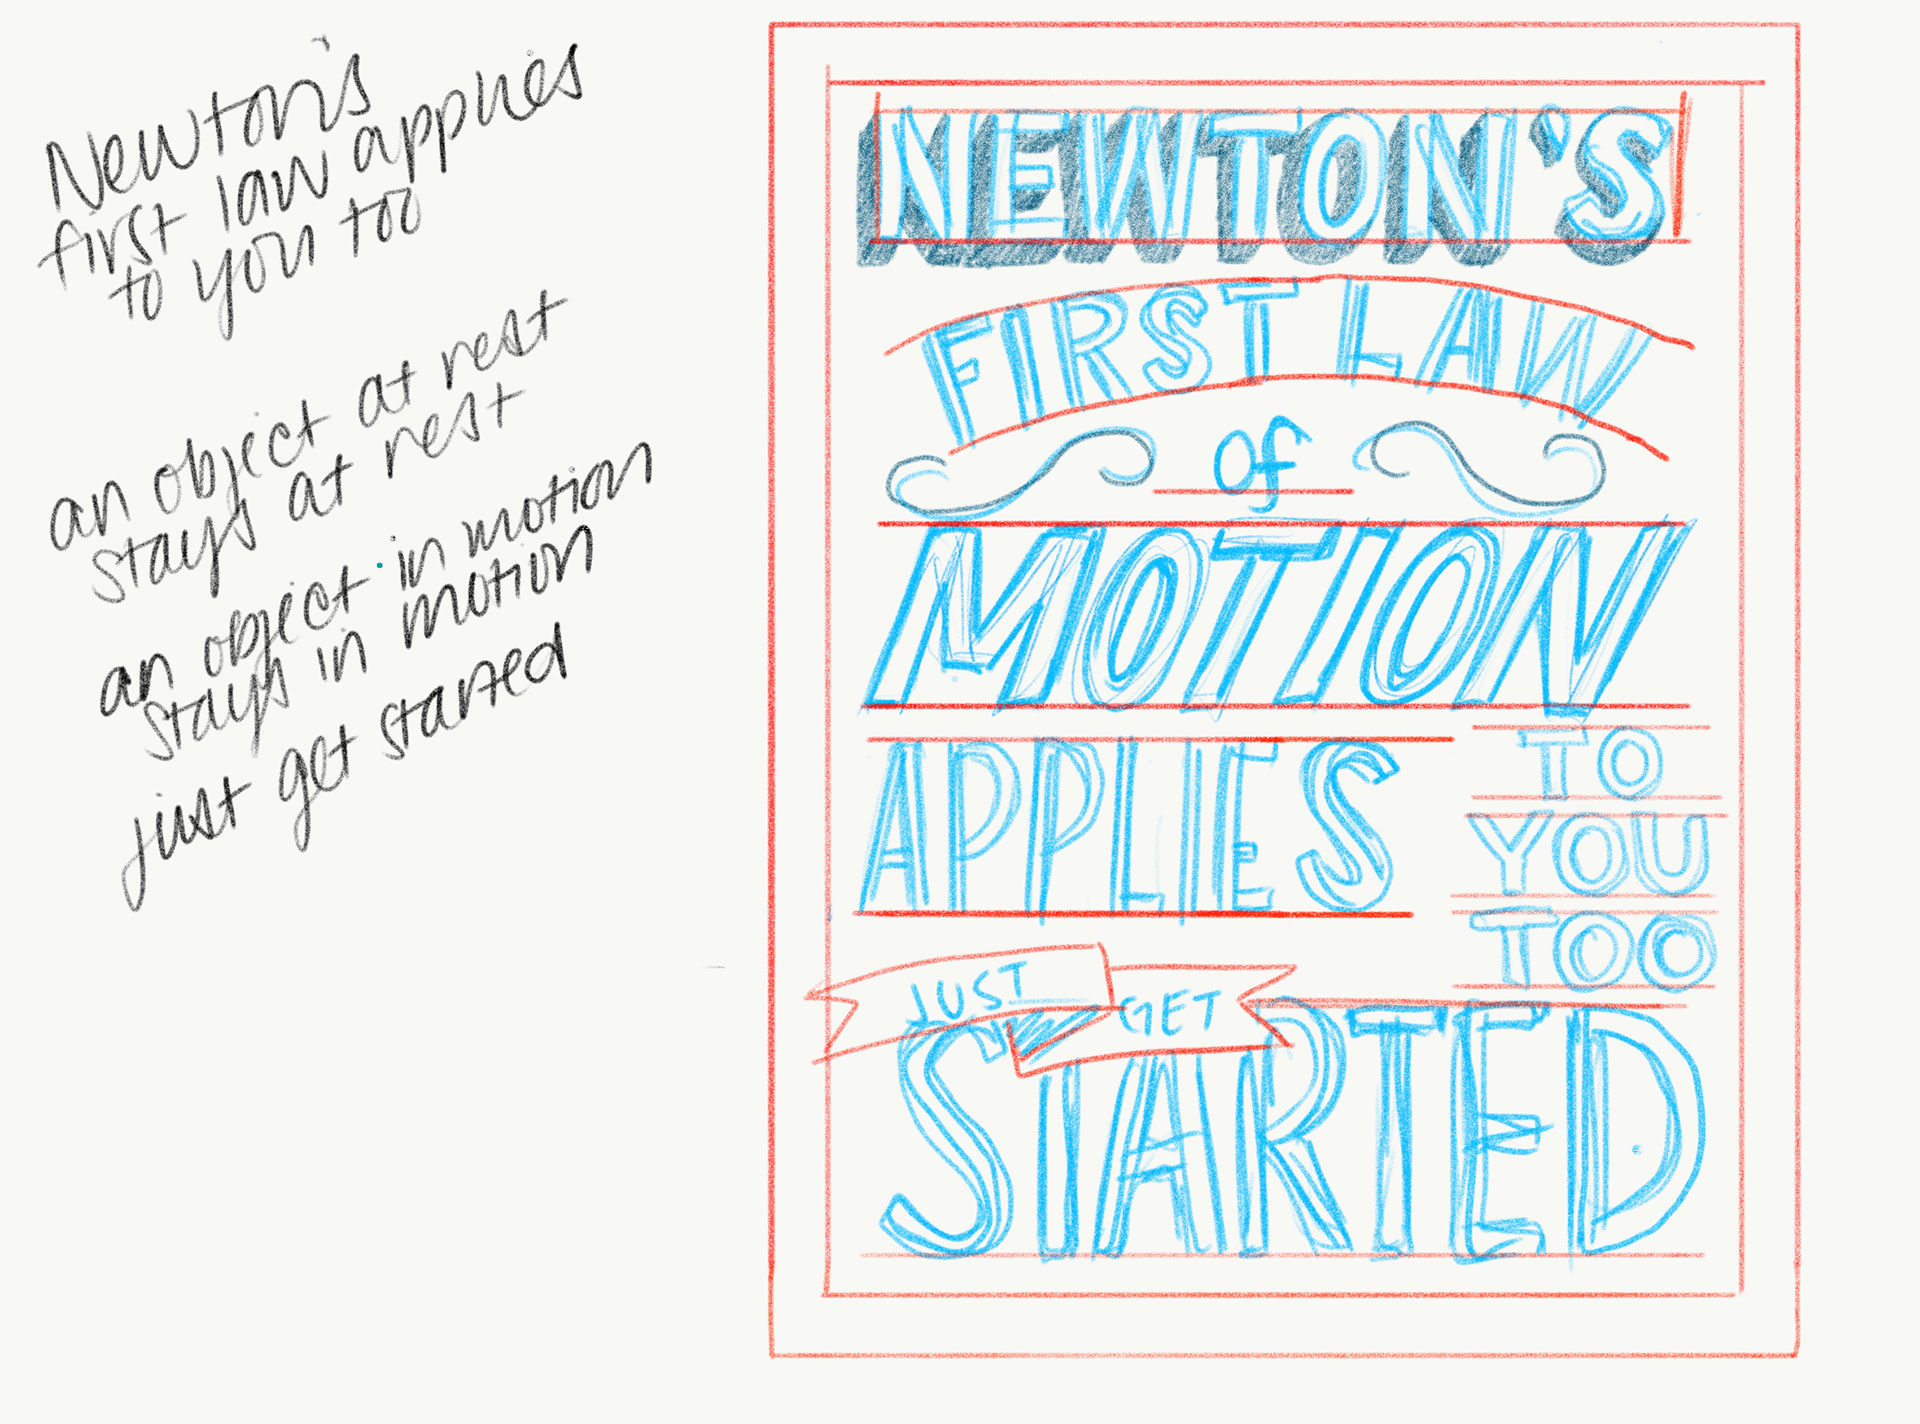 Newton's
first law applies
to you too
an object at rest
stays at rest
an object in motion
stays in motion
just get started
NEWTON'S
FIRST LAW
of
MOTION
APPLIES
TO
YOU
TOO
JUST GET
STARTED